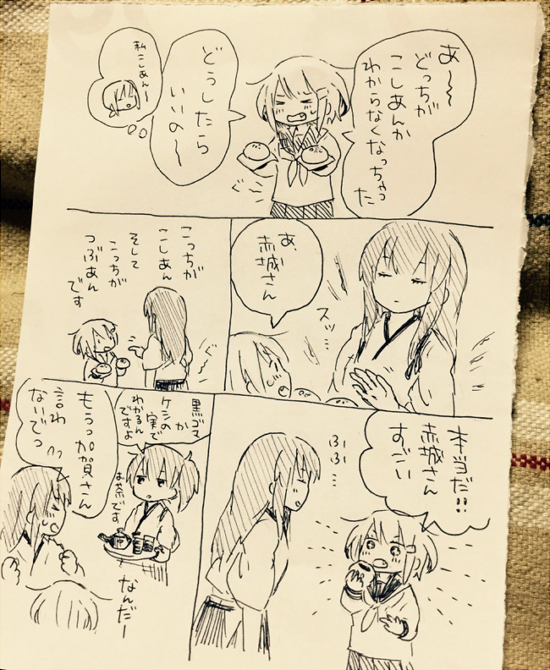 あ〜〜
どっちが
こしあんか
わからなくなっちゃった
どうしたら
いいの〜
私こしあんー
あ、
赤城さん
スッ…
こっちが
こしあん
そして
こっちが
つぶあん
です
ぐぅ〜
本当だ!!
赤城さん
すごい
ふふ…
黒ゴマ
か
ケシの実で
わかるんですよ
お茶です
もうっ加賀さん
言わ
ないでっ
なんだー